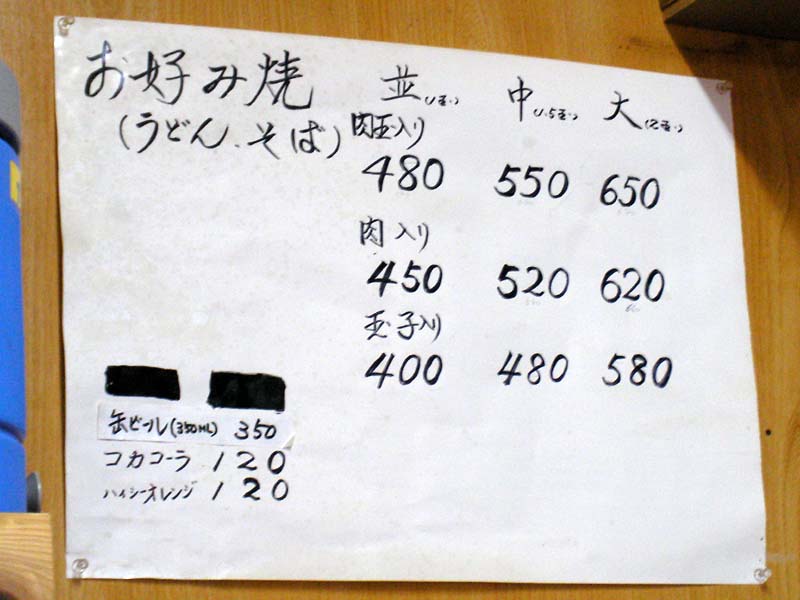 お好み焼 並(1玉) 中(1.5玉) 大(2玉)
(うどん、そば) 肉玉入り
480 550 650
肉入り
450 520 620
玉子入り
400 480 580
缶ビール(350ML) 350
コカコーラ 120
ハイシーオレンジ 120